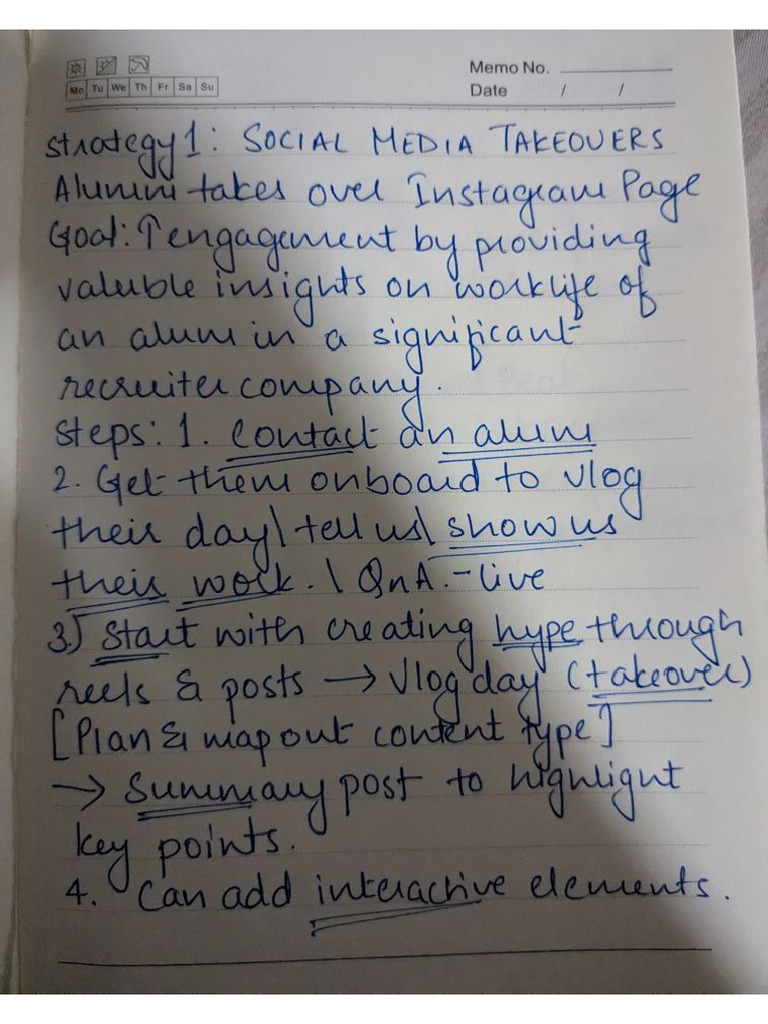 Memo No.
Mo Tu We Th Fr Sa Su
Date / /
Strategy 1: SOCIAL MEDIA TAKEOVERS
Alumni takes over Instagram Page
Goal: ↑ engagement by providing
valuble insights on worklife of
an alum in a significant
recruiter company.
Steps: 1. Contact an alum
2. Get them onboard to vlog
their day\ tell us\ show us
their work. \ QnA. - live
3.) Start with creating hype through
reels & posts → Vlog day (takeover)
[Plan & map out content type]
→ Summary post to highlight
key points.
4. Can add interactive elements.